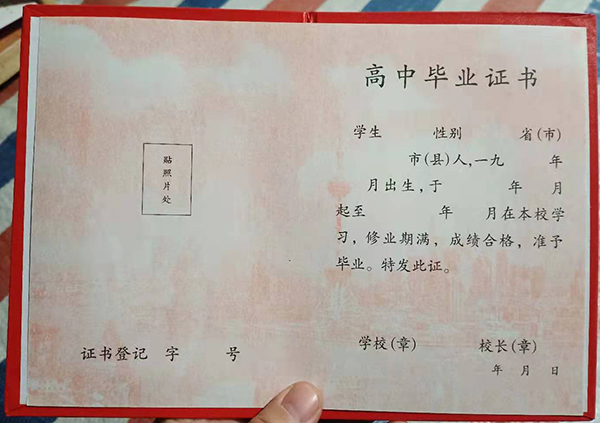 贴
照
片
处
证书登记 字 号
高中毕业证书
学生 性别 省(市)
市(县)人,一九 年
月出生,于 年 月
起至 年 月在本校学
习，修业期满，成绩合格，准予
毕业。特发此证。
学校(章) 校长(章)
年 月 日